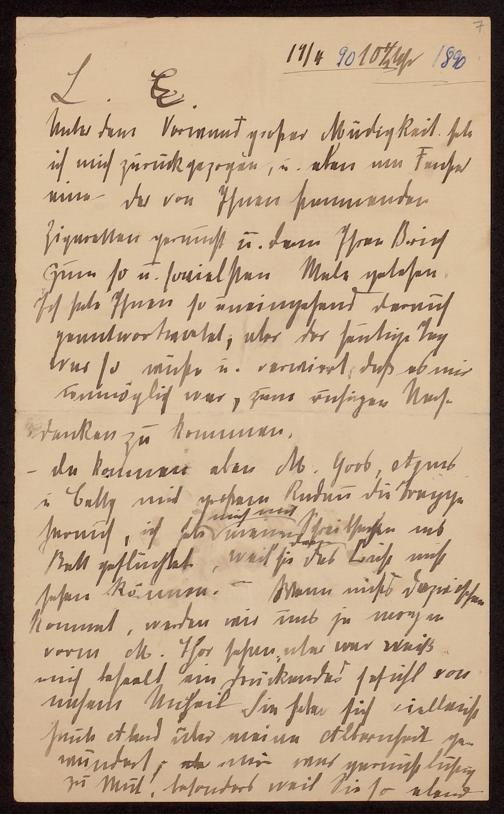 7
19/4 90 10 Uhr 1890
L. E.
Unter dem Vorwand großer Müdigkeit habe
ich mich zurückgezogen, u. eben am Fenster
eine der von Ihnen stammenden
Zigaretten geraucht u. dann Ihren Brief
zum so u. sovielsten Male gelesen.
Ich habe Ihnen so uneingehend darauf
geantwortet, aber der heutige Tag
war so u. verwirrt, daß es mir
unmöglich war, zum ruhigen Nach-
denken zu kommen.
– da kommen eben M. Goob, Agnes
u Betty mit großem Radau die Treppe
herauf, ich habe mich mit meinem Schreibzeug ins
Bett geflüchtet, weil sie das Licht
sehen können. – Wenn nichts dazwischen
kommt, werden wir uns ja morgen
vorm M. Thor sehen, aber was
mich befällt ein drückendes Gefühl von
Sie haben sich vielleicht
heute Abend über meine Albernheit ge-
wundert, mir war gar nicht lustig
zu Mut, besonders weil Sie so elend